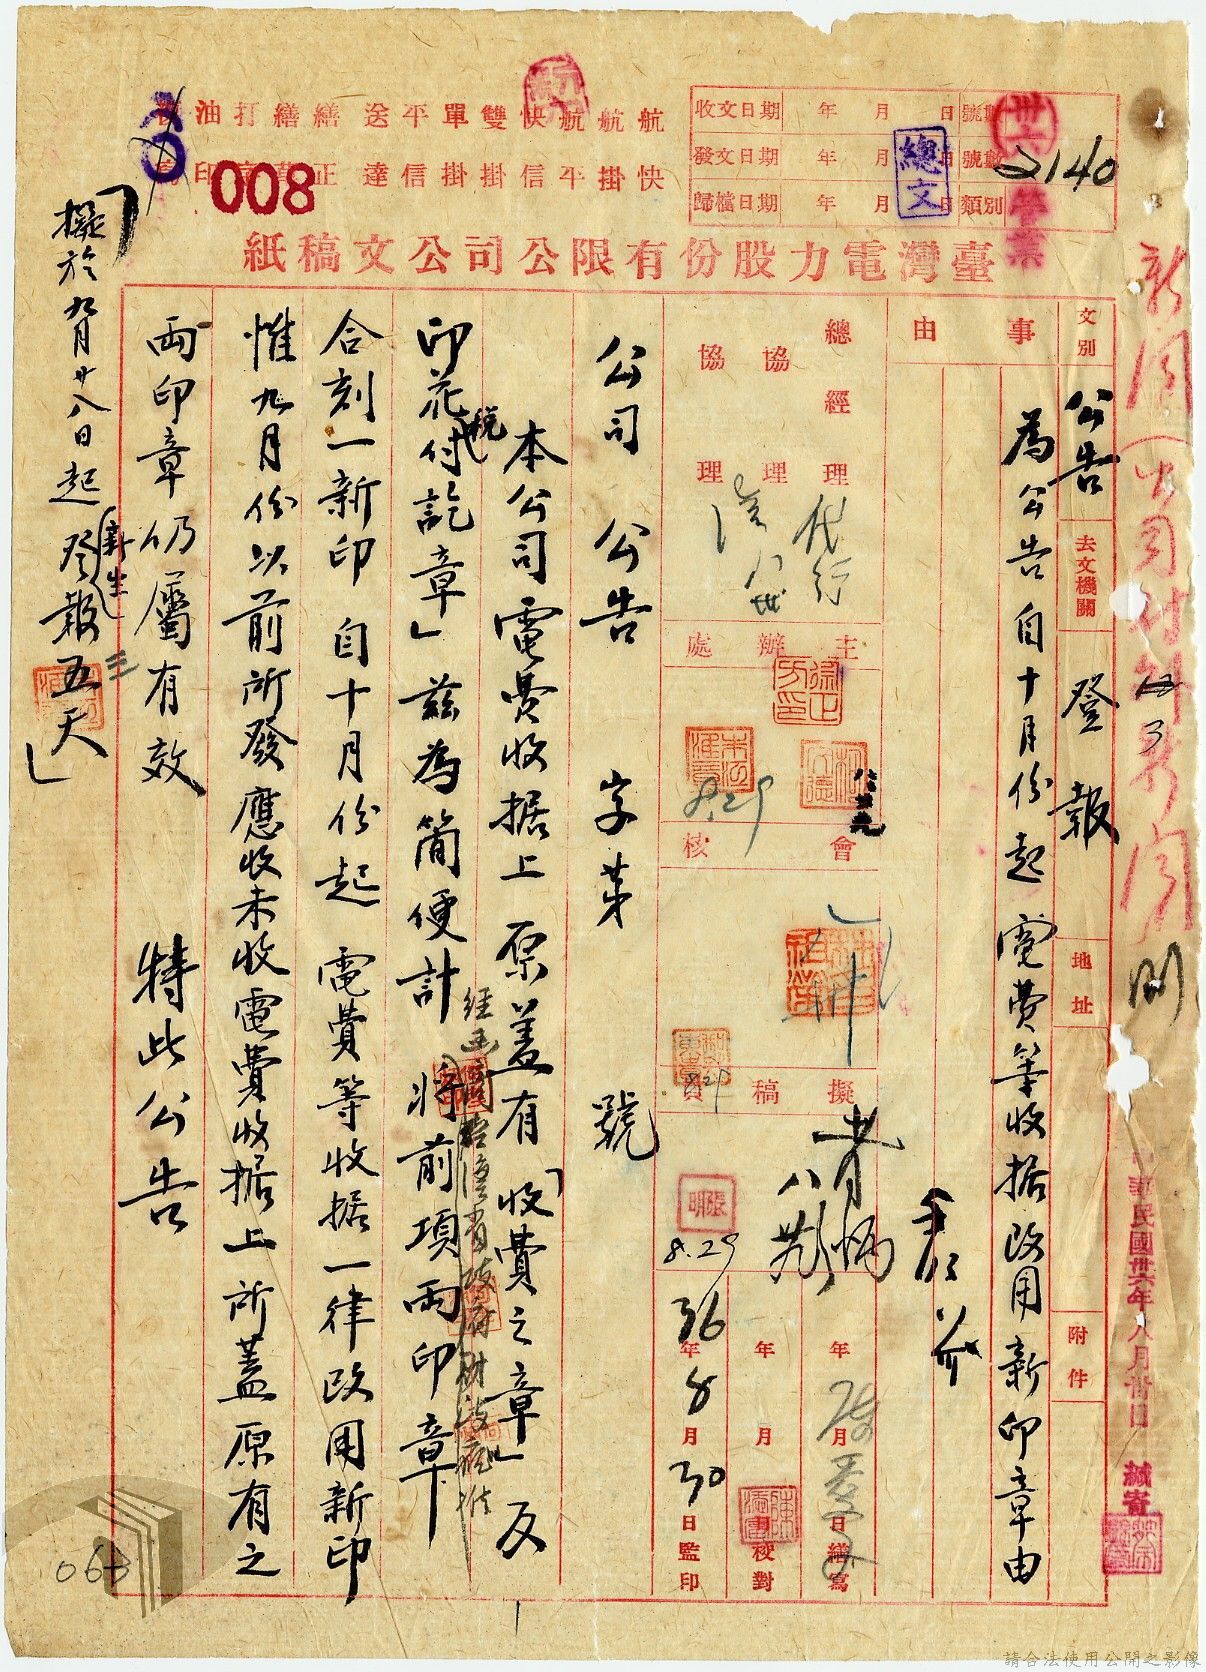 收文日期 年 月 日 號數
發文日期 年 月 日 號數
歸檔日期 年 月 日 類別
卅六
2140
總文
營業
航快
航掛
航平
快信
雙掛
單掛
平信
送達
繕正
打字
油印
008
臺灣電力股份有限公司公文稿紙
文別
公告
去文機關
登報
地址
附件
事由
為公告自十月份起電費等收据改用新印章由
總經理
代行
協理
協理
主辦處
會核
擬稿員
8.29
8.29
8.29
年 月 日繕寫
年 月 日校對
36年8月30日監印
公司公告 字第 號
本公司電費收据上原蓋有「收費之章」及
印花稅付訖章」茲為簡便計將前項兩印章
合刻一新印自十月份起電費等收据一律改用新印
惟九月份以前所發應收未收電費收据上所蓋原有之
兩印章仍屬有效 特此公告
擬於九月廿八日起登(新生)報五天」
三
中華民國卅六年八月卅日
緘齊
063
請合法使用公開之影像